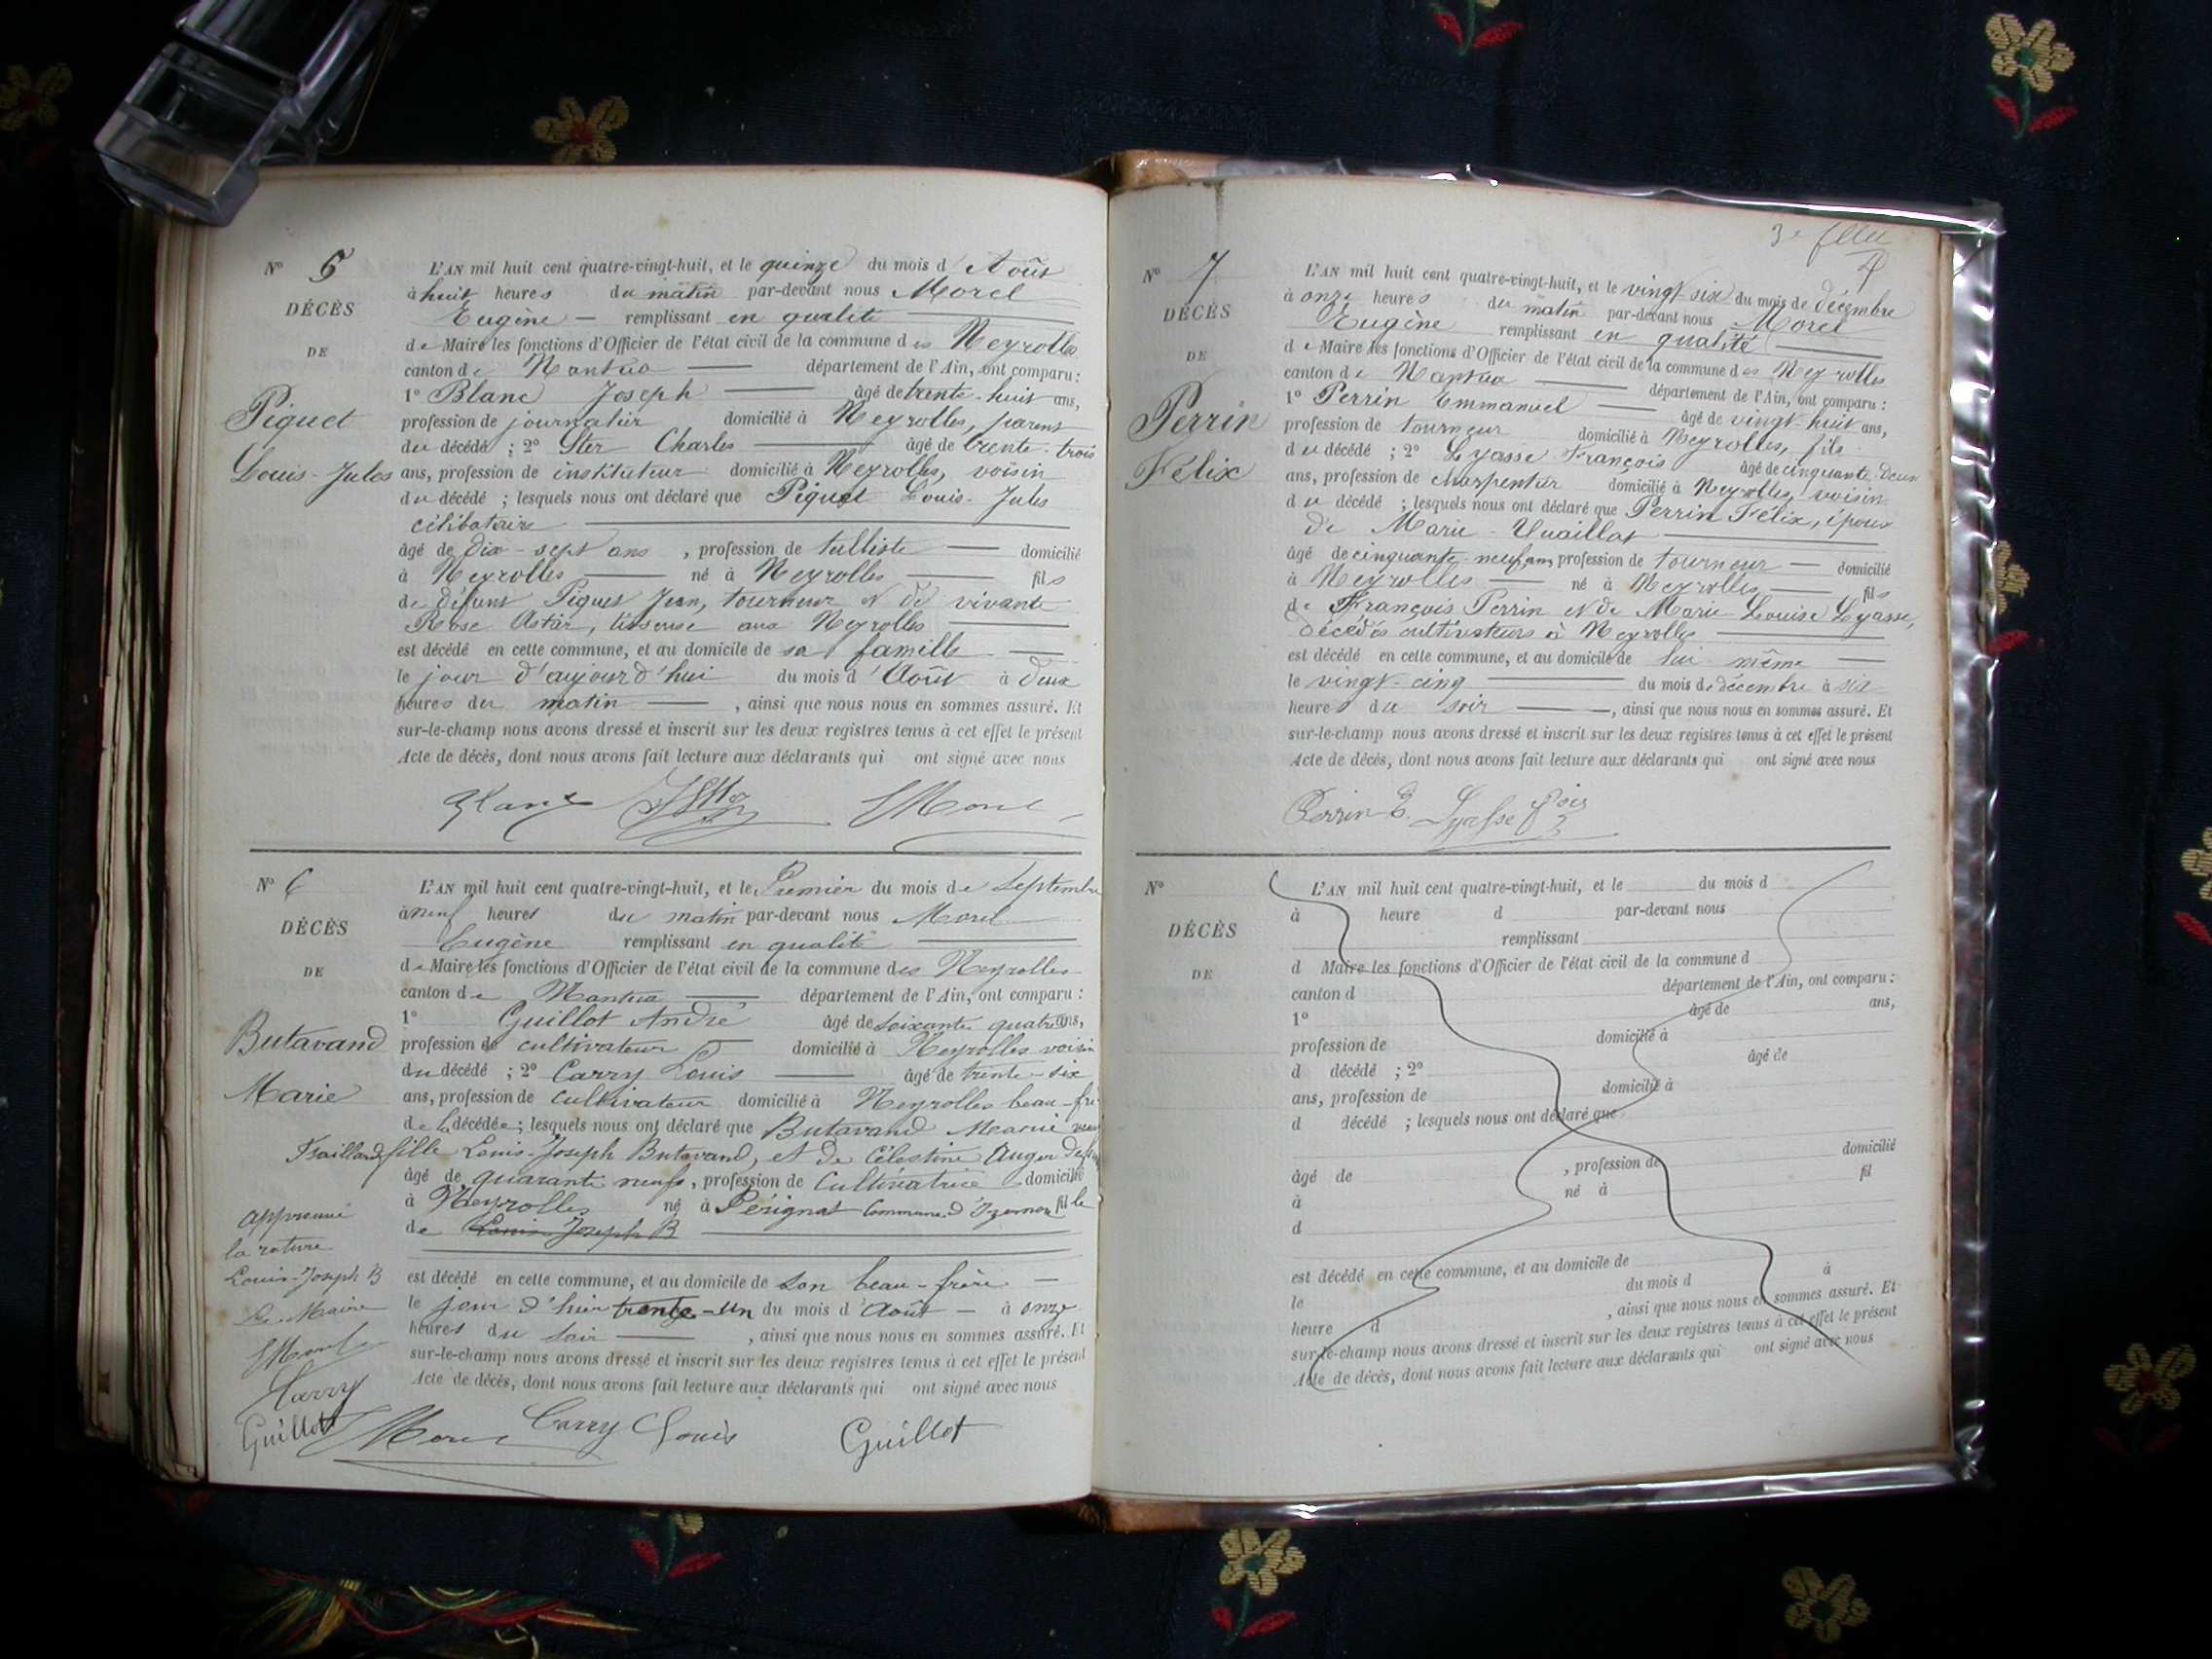 N° 5
DÉCÈS
DE
Piquet
Louis-Jules
L'AN mil huit cent quatre-vingt-huit, et le quinze du mois d'Août
à huit heures du matin par-devant nous Morel
Eugène — remplissant en qualité
de Maire les fonctions d'Officier de l'état civil de la commune des Neyrolles
canton de Nantua département de l'Ain, ont comparu :
1° Blanc Joseph âgé de trente-huit ans,
profession de journalier domicilié à Neyrolles, parent
du décédé ; 2° Charles âgé de trente-trois
ans, profession de instituteur domicilié à Neyrolles, voisin
du décédé ; lesquels nous ont déclaré que Piquet Louis-Jules
célibataire
âgé de dix-sept ans , profession de tulliste domicilié
à Neyrolles né à Neyrolles fils
de défunt Piquet Jean, tourneur et de vivante
Rose Astier, tisseuse aux Neyrolles
est décédé en cette commune, et au domicile de sa famille
le jour d'aujourd'hui du mois d'Août à deux
heures du matin , ainsi que nous nous en sommes assuré. Et
sur-le-champ nous avons dressé et inscrit sur les deux registres tenus à cet effet le présent
Acte de décès, dont nous avons fait lecture aux déclarants qui ont signé avec nous
Blanc EMorel
N° 6
DÉCÈS
DE
Butavand
Marie
L'AN mil huit cent quatre-vingt-huit, et le Premier du mois de Septembre
à neuf heures du matin par-devant nous Morel
Eugène remplissant en qualité
de Maire les fonctions d'Officier de l'état civil de la commune des Neyrolles
canton de Nantua département de l'Ain, ont comparu :
1° Guillot André âgé de soixante quatre ans,
profession de cultivateur domicilié à Neyrolles voisin
du décédé ; 2° Carry Louis âgé de trente-six
ans, profession de cultivateur domicilié à Neyrolles beau-frè
de la décédée ; lesquels nous ont déclaré que Butavand Marie
fille Louis-Joseph Butavand, et de Célestine Auger
âgé de quarante neuf , profession de Cultivatrice domicilié
à Neyrolles né à Pérignat Commune d'Izernore fille
de Louis Joseph B
est décédé en cette commune, et au domicile de son beau-frère
le jour d'hier trente-un du mois d'Août à onze
heures du soir , ainsi que nous nous en sommes assuré. Et
sur-le-champ nous avons dressé et inscrit sur les deux registres tenus à cet effet le présent
Acte de décès, dont nous avons fait lecture aux déclarants qui ont signé avec nous
approuvé
la rature
Louis-Joseph B
Le Maire
EMorel
Carry
Guillot
EMorel Carry Louis Guillot
3e
N° 7
DÉCÈS
DE
Perrin
Félix
L'AN mil huit cent quatre-vingt-huit, et le vingt-six du mois de décembre
à onze heures du matin par-devant nous Morel
Eugène remplissant en qualité
de Maire les fonctions d'Officier de l'état civil de la commune des Neyrolles
canton de Nantua département de l'Ain, ont comparu :
1° Perrin Emmanuel âgé de vingt-huit ans,
profession de tourneur domicilié à Neyrolles, fils
du décédé ; 2° Lyasse François âgé de cinquante-deux
ans, profession de charpentier domicilié à Neyrolles, voisin
du décédé ; lesquels nous ont déclaré que Perrin Félix, époux
de Marie
âgé de cinquante-neuf ans, profession de tourneur domicilié
à Neyrolles né à Neyrolles fils
de François Perrin et de Marie Louise Lyasse,
décédés cultivateurs à Neyrolles
est décédé en cette commune, et au domicile de lui-même
le vingt-cinq du mois de décembre à six
heures du soir , ainsi que nous nous en sommes assuré. Et
sur-le-champ nous avons dressé et inscrit sur les deux registres tenus à cet effet le présent
Acte de décès, dont nous avons fait lecture aux déclarants qui ont signé avec nous
Perrin E. Lyasse fçois
N°
DÉCÈS
DE
L'AN mil huit cent quatre-vingt-huit, et le du mois d
à heure d par-devant nous
remplissant
d Maire les fonctions d'Officier de l'état civil de la commune d
canton d département de l'Ain, ont comparu :
1° âgé de ans,
profession de domicilié à
d décédé ; 2° âgé de
ans, profession de domicilié à
d décédé ; lesquels nous ont déclaré que
âgé de , profession de domicilié
à né à fil
d
est décédé en cette commune, et au domicile de
le du mois d à
heure d , ainsi que nous nous en sommes assuré. Et
sur-le-champ nous avons dressé et inscrit sur les deux registres tenus à cet effet le présent
Acte de décès, dont nous avons fait lecture aux déclarants qui ont signé avec nous